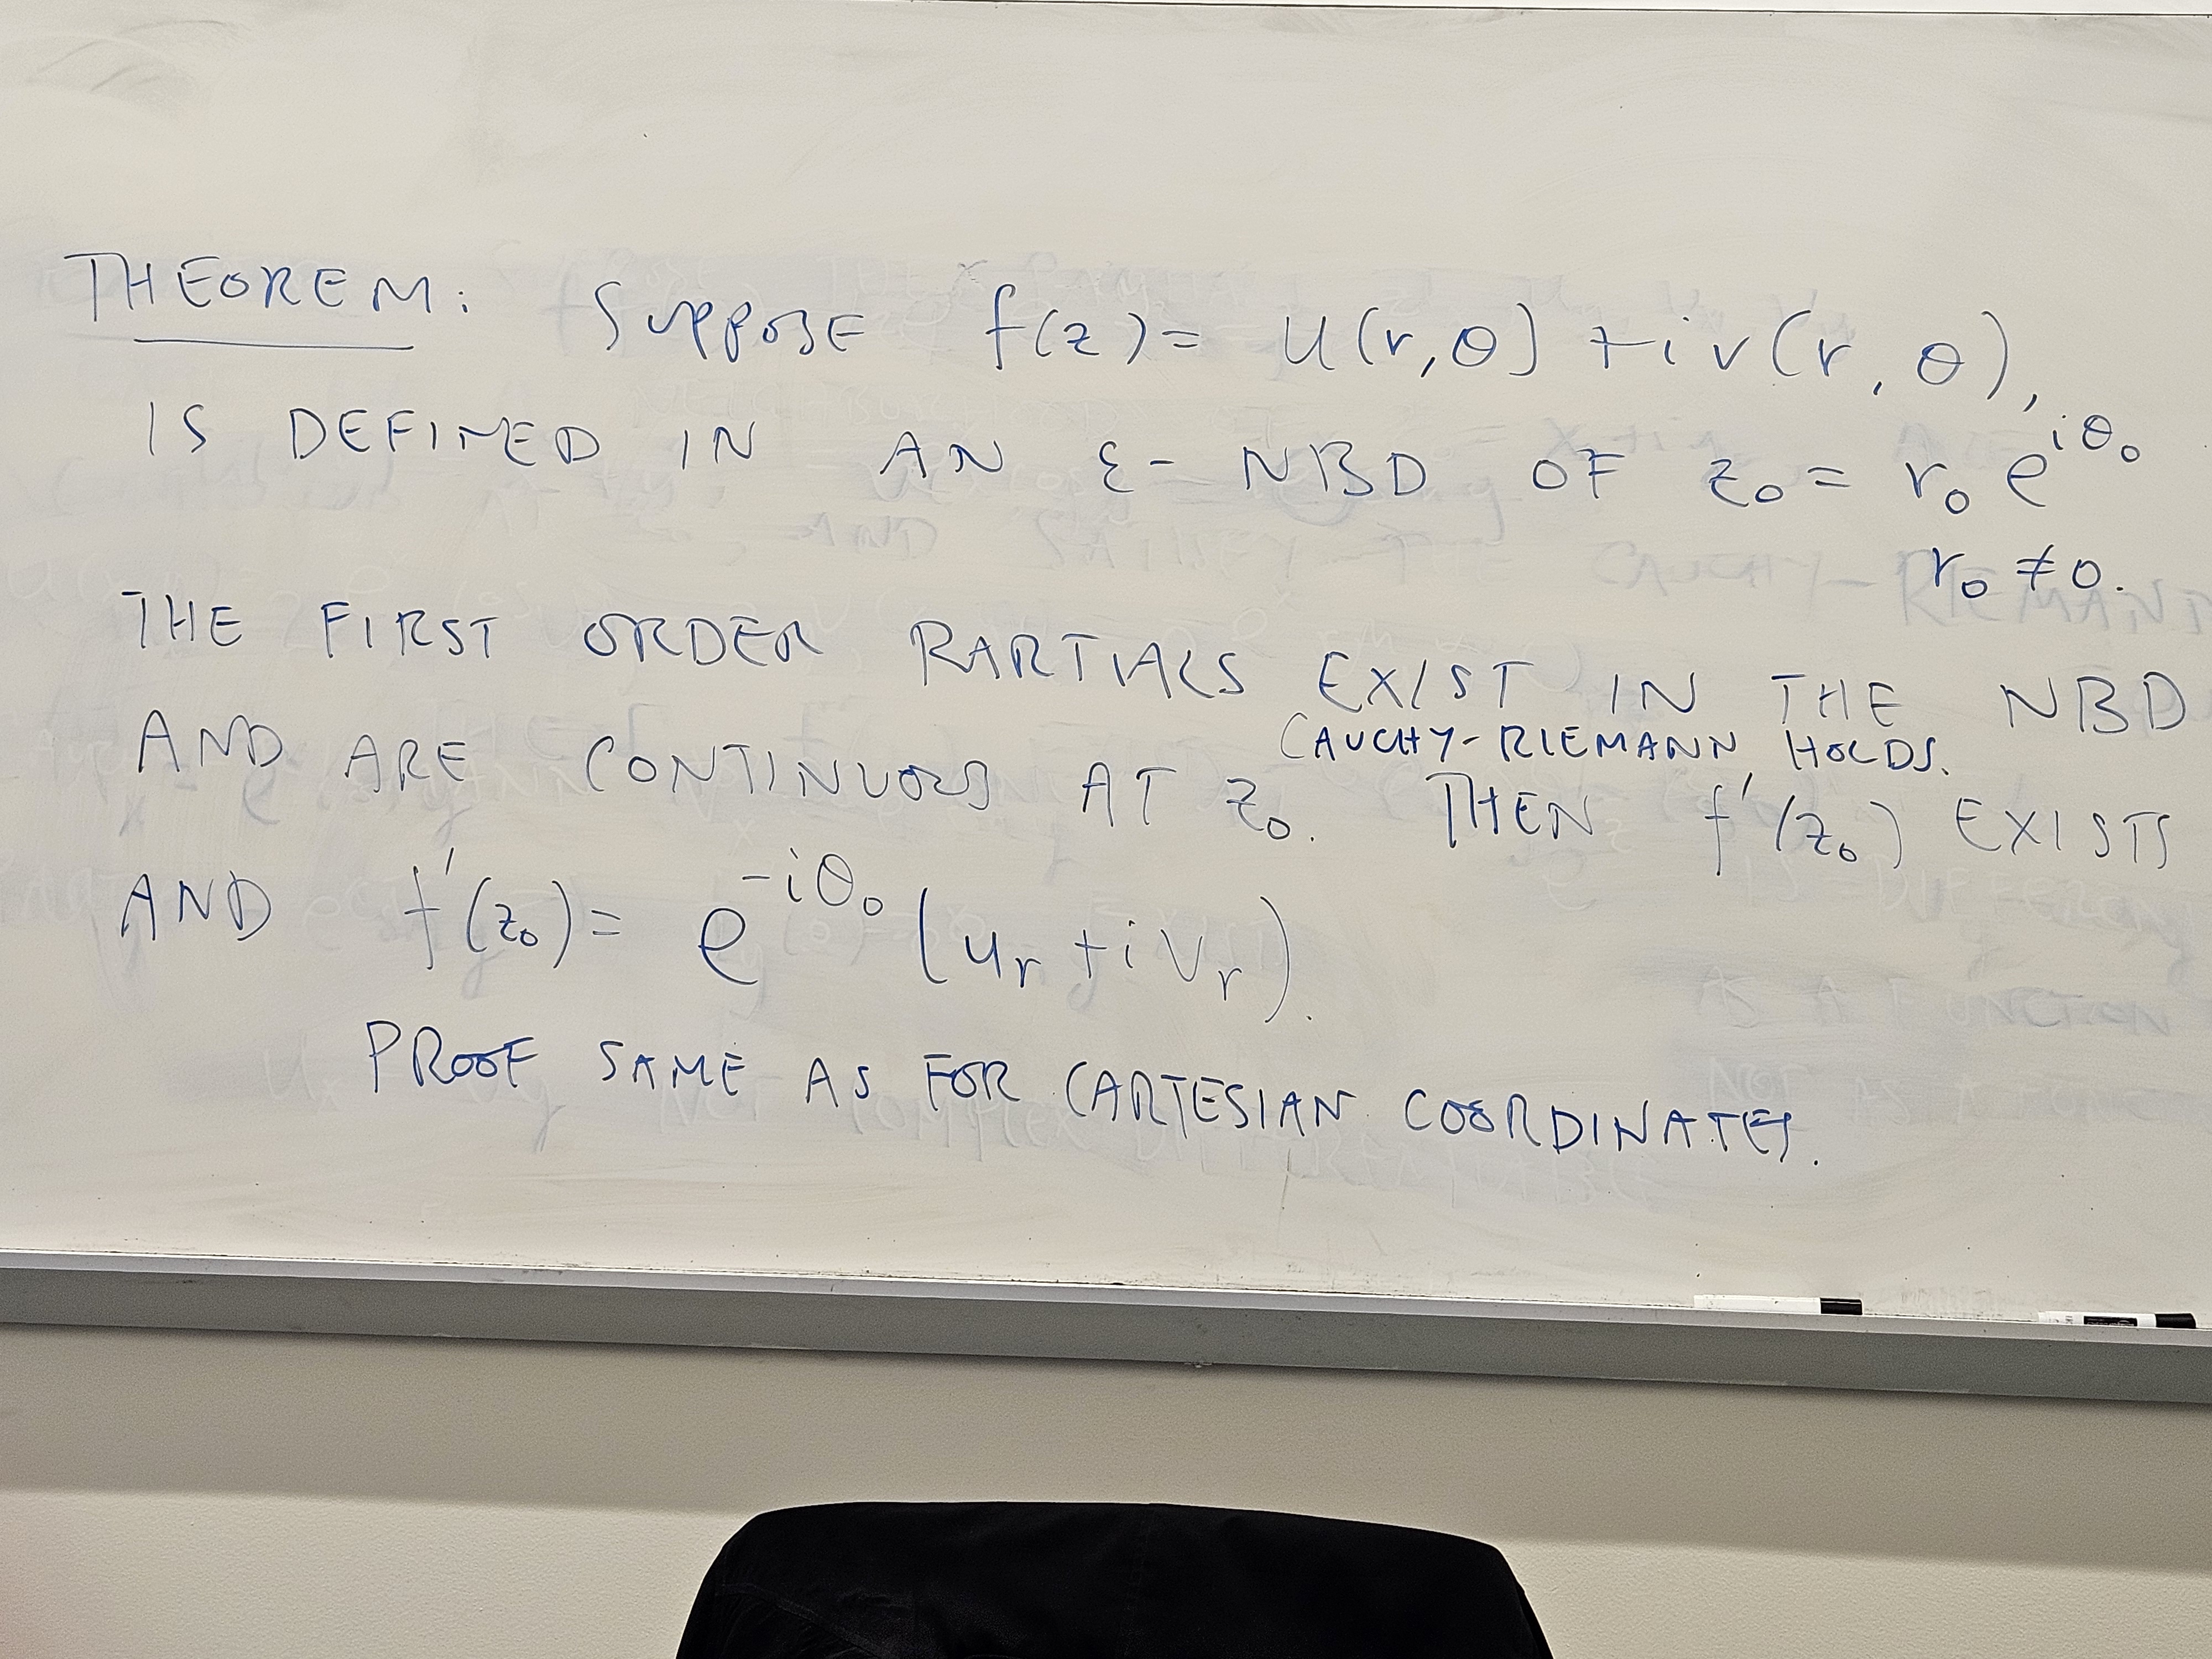 THEOREM: SUPPOSE f(z) = u(r,θ) + i v(r, θ),
IS DEFINED IN AN ε- NBD OF z₀ = r₀ e^{iθ₀}
r₀ ≠ 0.
THE FIRST ORDER PARTIALS EXIST IN THE NBD
CAUCHY-RIEMANN HOLDS.
AND ARE CONTINUOUS AT z₀. THEN f'(z₀) EXISTS
AND f'(z₀) = e^{-iθ₀} (u_r + i v_r).
PROOF SAME AS FOR CARTESIAN COORDINATES.